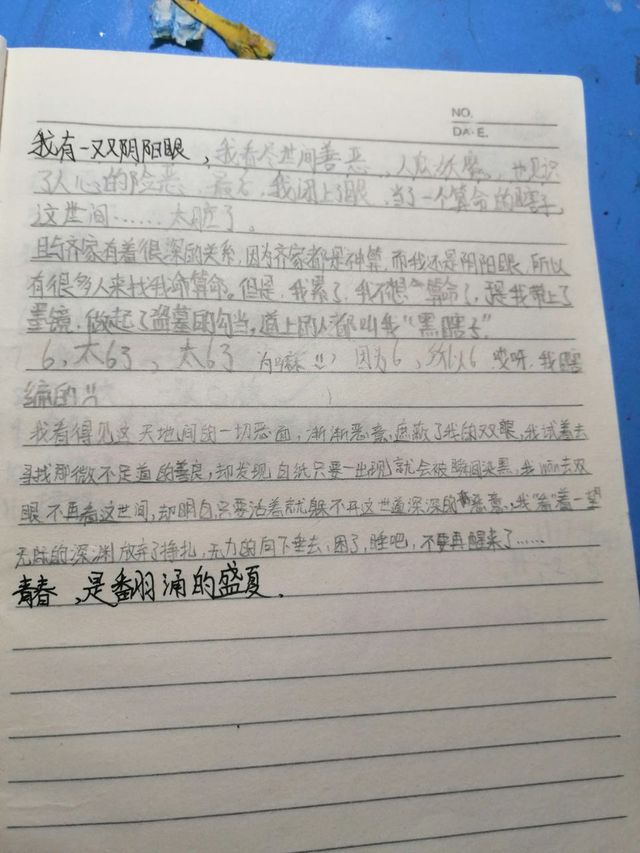 NO.
DATE.
我有一双阴阳眼，我看尽世间善恶，人鬼妖魔，也见识
了人心的险恶，最后，我闭上了眼，当了一个算命的瞎子，
这世间……太脏了。
且与齐家有着很深的关系，因为齐家都是神算，而我还是阴阳眼，所以
有很多人来找我命算命。但是，我累了，我不想算命了，是我带上了
墨镜，做起了盗墓的勾当，道上的人都叫我“黑瞎子”
6，太6了，太6了 为嘛 !!? 因为6，所以6 哎呀，我瞎
编的!!
我看得见这天地间的一切恶面，渐渐恶意，遮蔽了我的双眼，我试着去
寻找那微不足道的善良，却发现白纸只要一出现就会被瞬间染黑，我 去双
眼不再看这世间，却明白只要活着就躲不开这世道深深的恶意，我“看”着一望
无际的深渊放弃了挣扎，无力的向下垂去，困了，睡吧，不要再醒来了……
青春，是翻羽涌的盛夏．